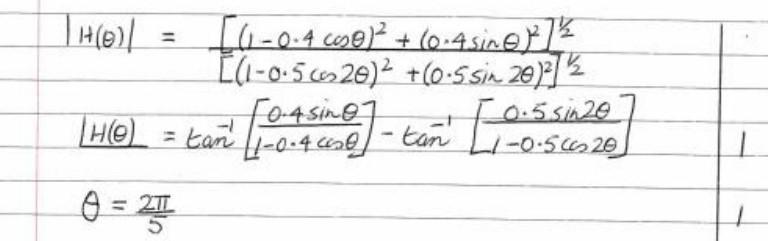 |H(θ)| = [(1-0.4 cosθ)² + (0.4 sinθ)²]^½ / [(1-0.5 cos 2θ)² + (0.5 sin 2θ)²]^½
∠H(θ) = tan⁻¹ [0.4 sinθ / 1-0.4 cosθ] - tan⁻¹ [0.5 sin2θ / 1-0.5 cos 2θ] 1
θ = 2π/5 1